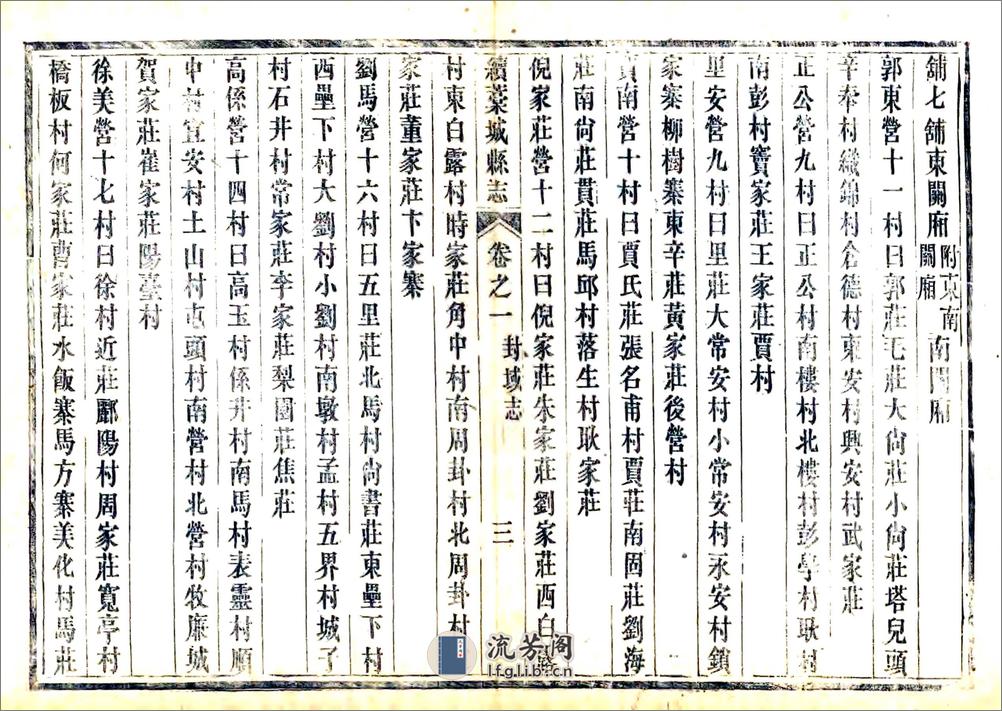 舖七舖東關廂附東南關廂南關廂
郭東營十一村曰郭莊七莊大尙莊小尙莊塔兒頭
辛奉村織錦村侖德村東安村興安村武家莊
正公營九村曰正公村南樓村北樓村彭亭村耿村
南彭村竇家莊王家莊賈村
里安營九村曰里莊大常安村小常安村永安村鎮
家寨柳樹寨東辛莊黃家莊後營村
南營十村曰賈氏莊張名甫村賈莊南固莊劉海
莊南尙莊貫莊馬邱村落生村耿家莊
倪家莊營十二村曰倪家莊朱家莊劉家莊西白露
續藁城縣志 卷之一 封域志 三
村東白露村時家莊角中村南周卦村北周卦村
家莊董家莊卞家寨
劉馬營十六村曰五里莊北馬村尙書莊東壘下村
西壘下村大劉村小劉村南墩村孟村五界村城子
村石井村常家莊李家莊梨園莊焦莊
高係營十四村曰高玉村係井村南馬村表靈村順
中村宜安村土山村屯頭村南營村北營村牧廉城
賀家莊崔家莊陽臺村
徐美營十七村曰徐村近莊酈陽村周家莊寬亭村
橋板村何家莊曹家莊水飯寨馬方寨美化村馬莊
流芳阁
lfglib.cn